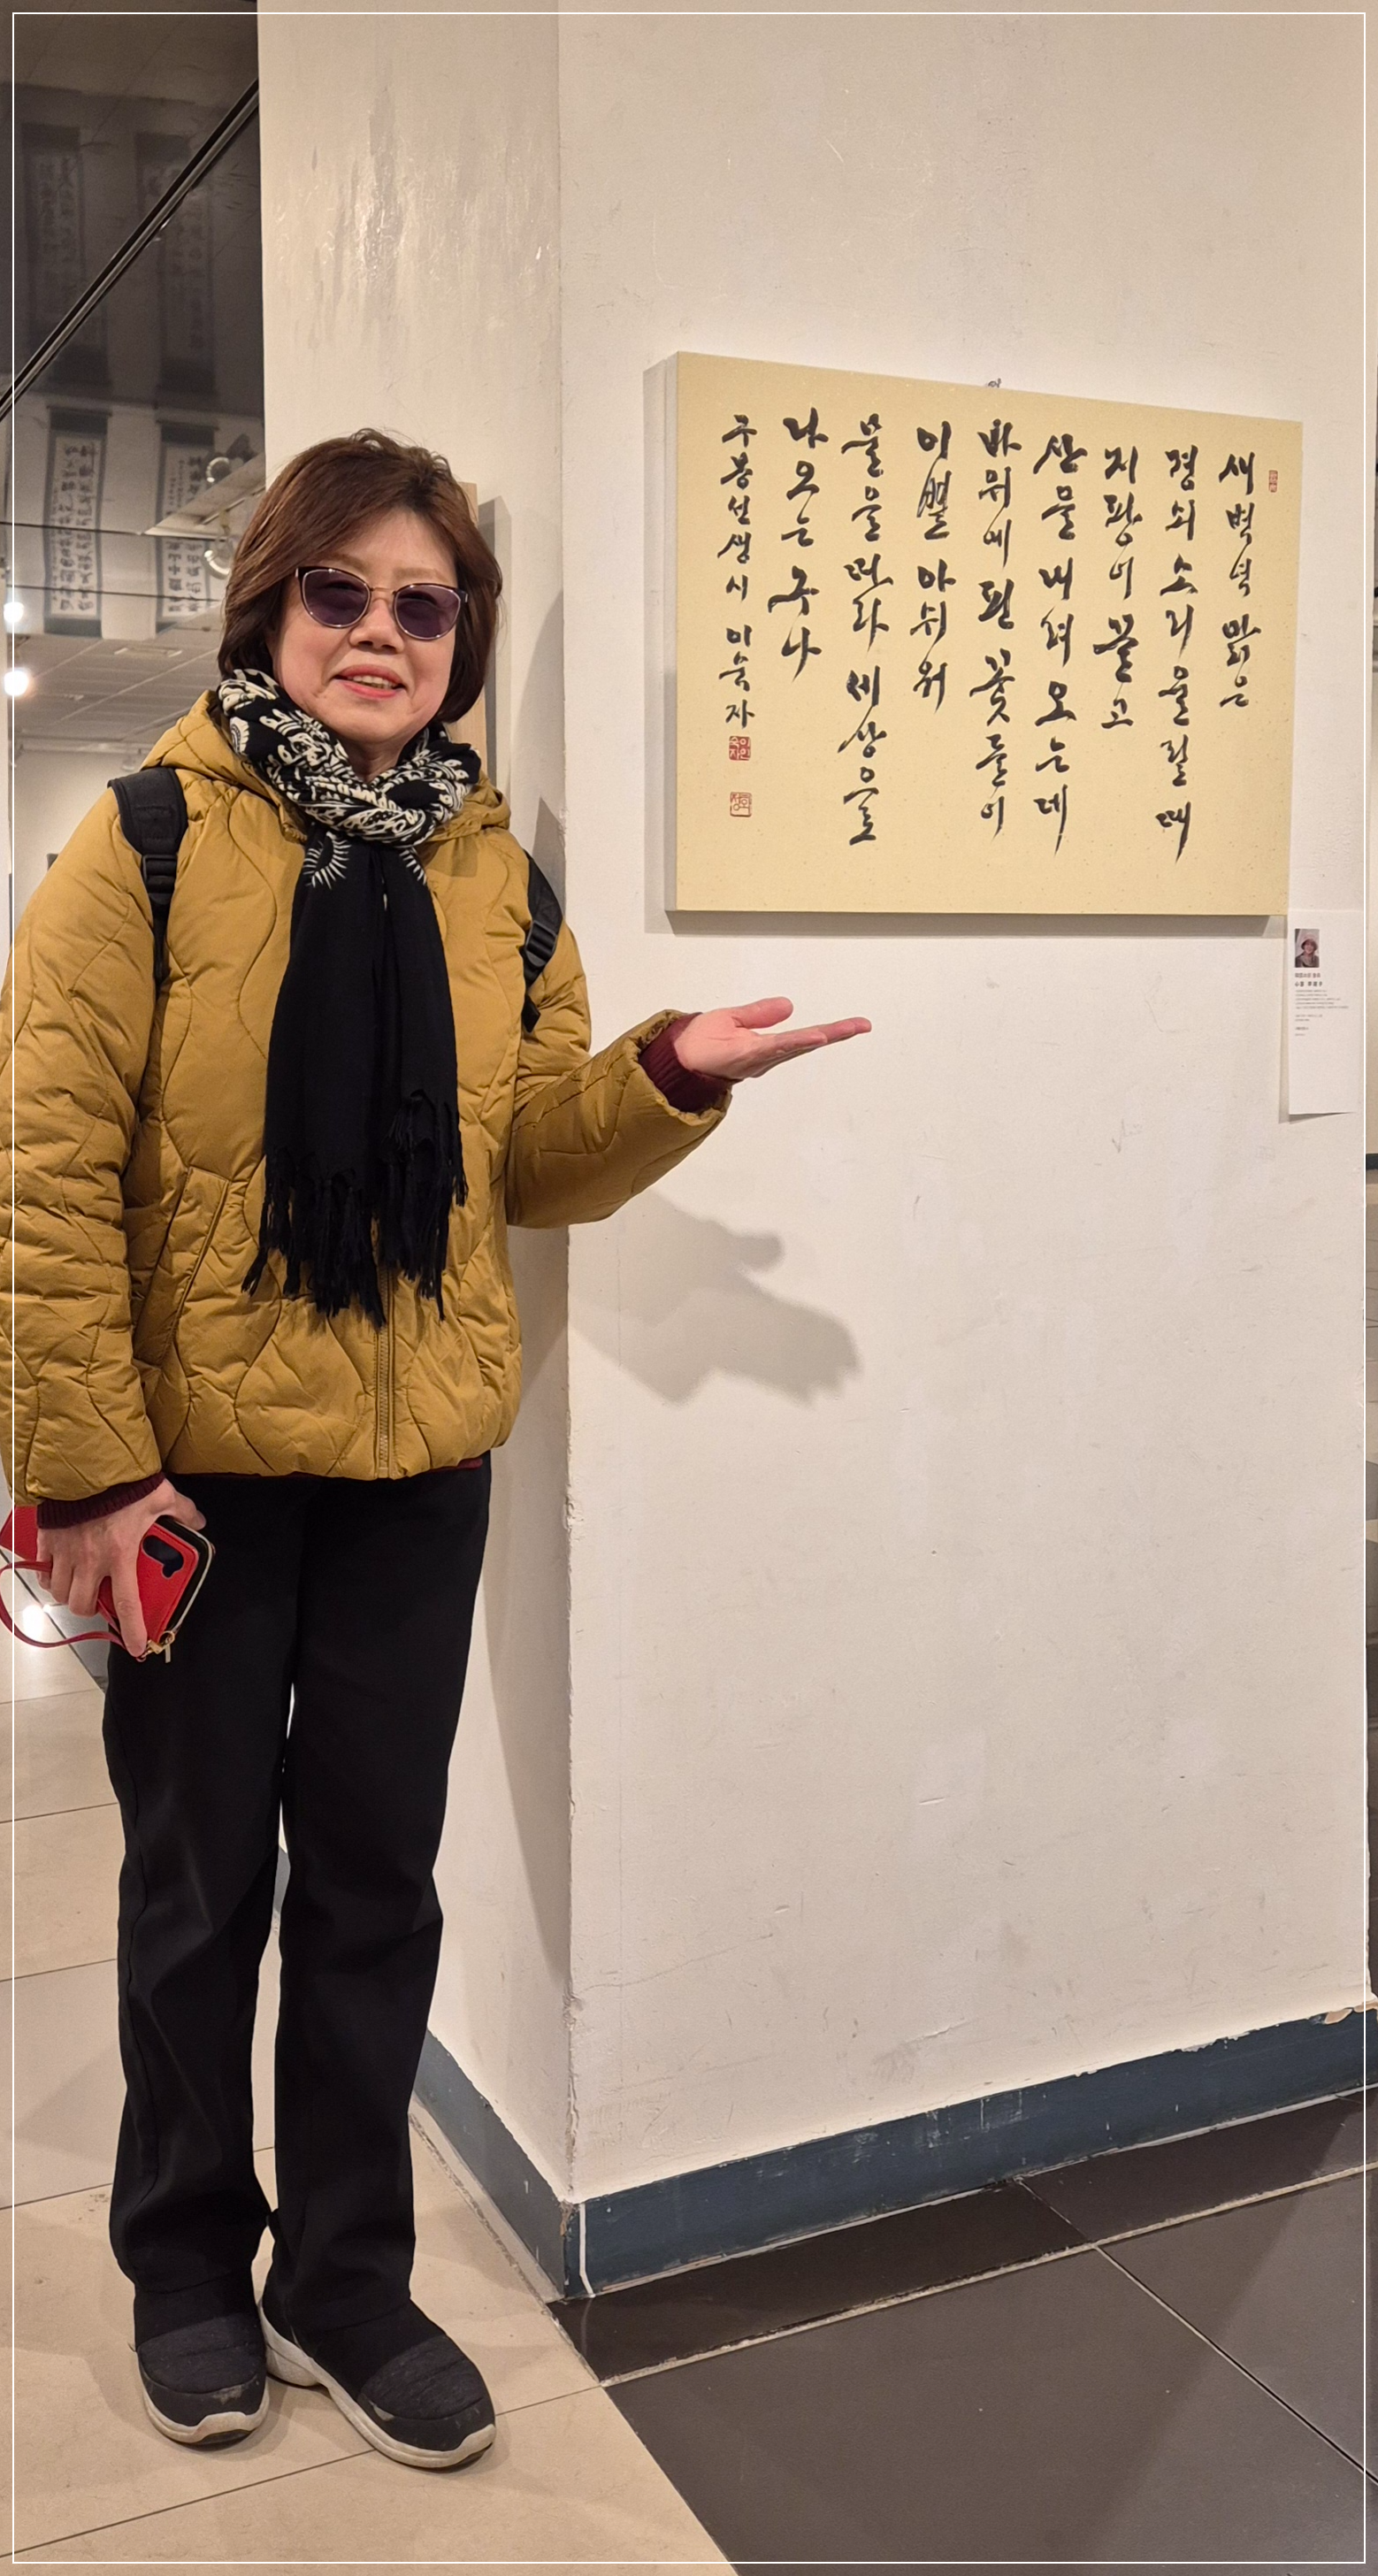 새벽녘 맑은
경쇠 소리 울릴 때
지팡이 끌고
산문 내려 오는데
바위에 핀 꽃들이
이별 아쉬워
물을 따라 세상을
나오는구나
구봉선생시 이숙자